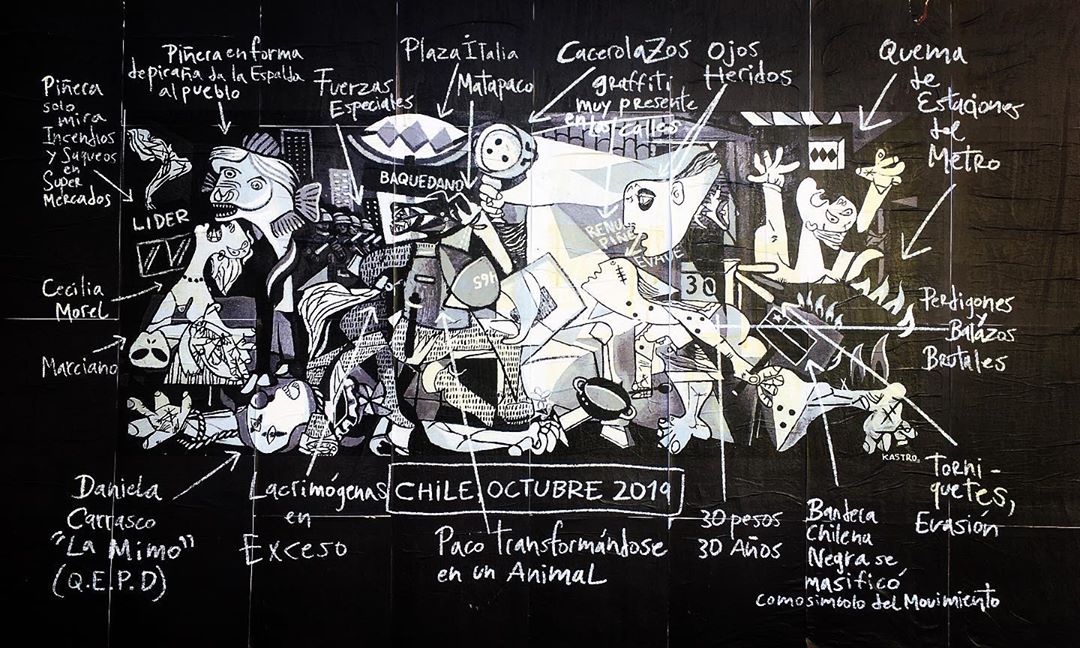 Piñera
solo
mira
Incendios
y Saqueos
en
Super
Mercados
Piñera en forma
de piraña da la Espalda
al pueblo
Fuerzas
Especiales
Plaza Italia
Matapaco
Cacerolazos
graffiti
muy presente
en las calles
Ojos
Heridos
Quema
de
Estaciones
del
Metro
LIDER
BAQUEDANO
RENU
PIÑE
EVADE
465
30
Cecilia
Morel
Marciano
Perdigones
y
Balazos
Brutales
KASTRO.
Daniela
Carrasco
"La Mimo"
(Q.E.P.D)
Lacrimógenas
en
Exceso
CHILE, OCTUBRE 2019
Paco Transformándose
en un Animal
30 pesos
30 Años
Bandera
Chilena
Negra se
masificó
como simbolo del Movimiento
Torni-
quetes,
Evasión